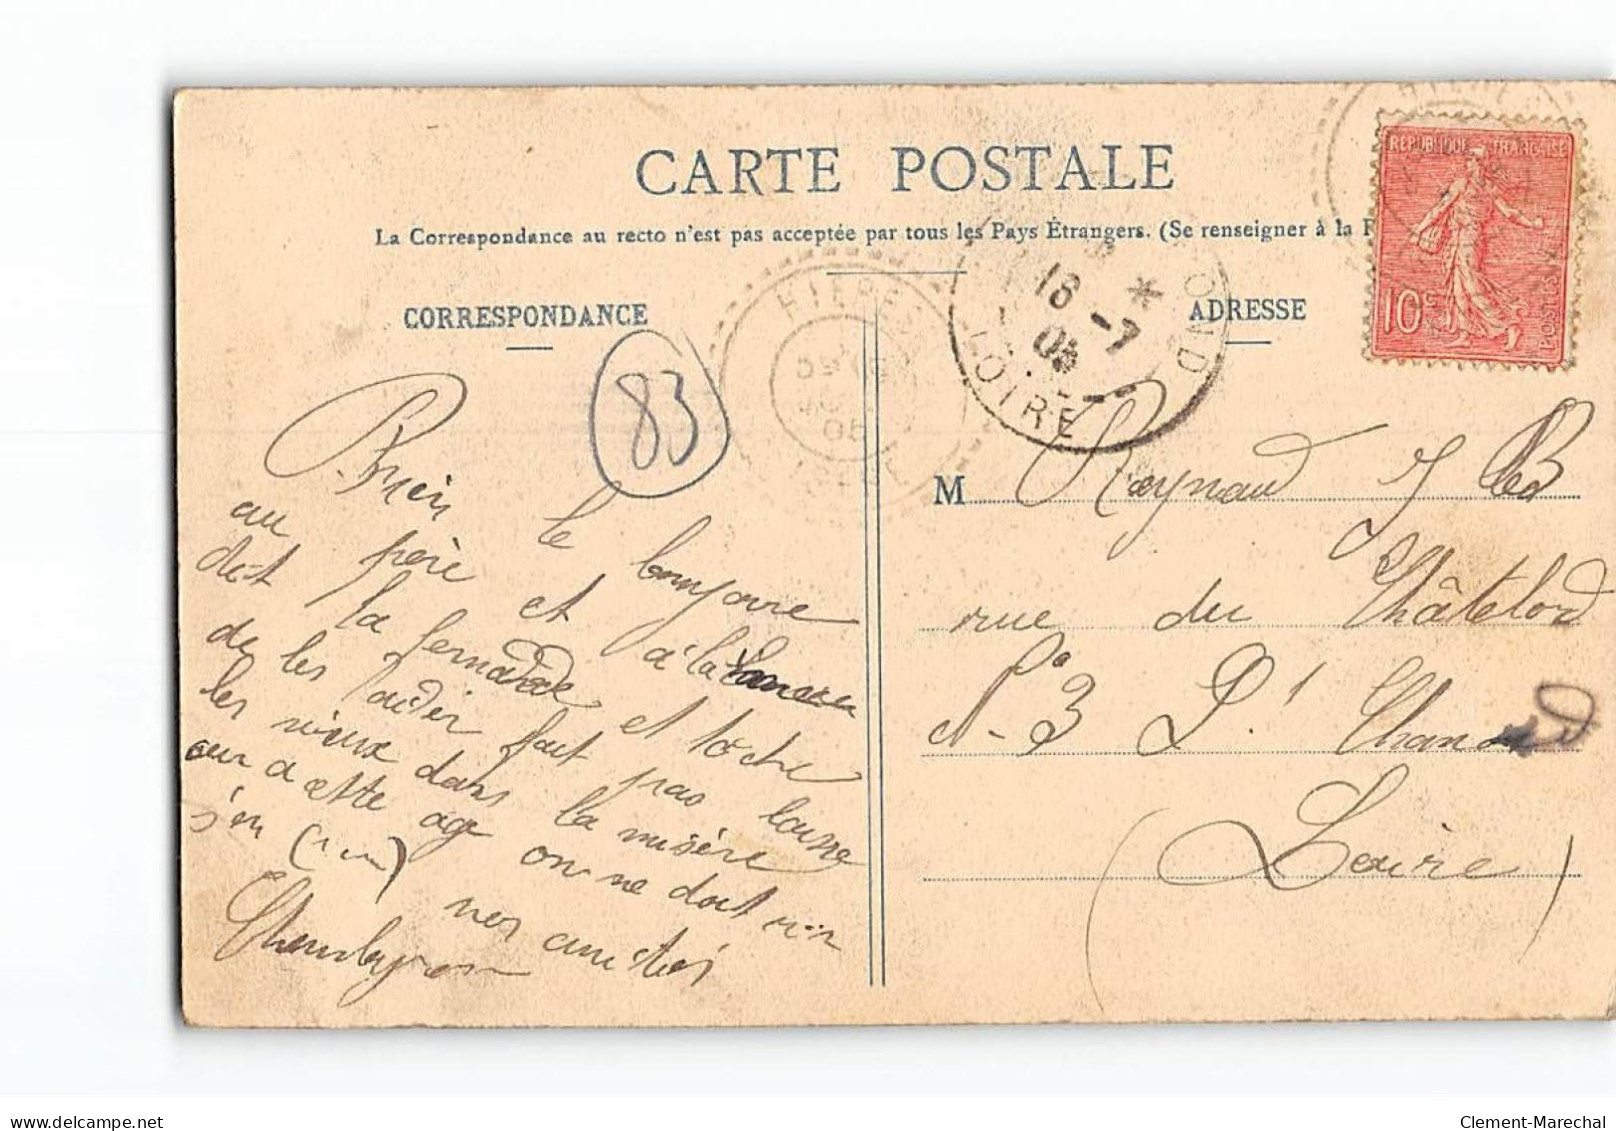 CARTE POSTALE
La Correspondance au recto n'est pas acceptée par tous les Pays Étrangers. (Se renseigner à la
CORRESPONDANCE
ADRESSE
HIERES
18 -7
05
LOIRE
OND
REPUBLIQUE FRANÇAISE
10 c
POSTES
83
M Raynaud J B
rue du Châtelard
N° 3 St Chamond
(Loire)
Bien le bonjour
au père et à la
dit la fernande et toche
de les aider fait pas laisse
les vieux dans la misère
car a cette age on ne doit rien
s'en nos amitiés
delcampe.net
Clement-Marechal